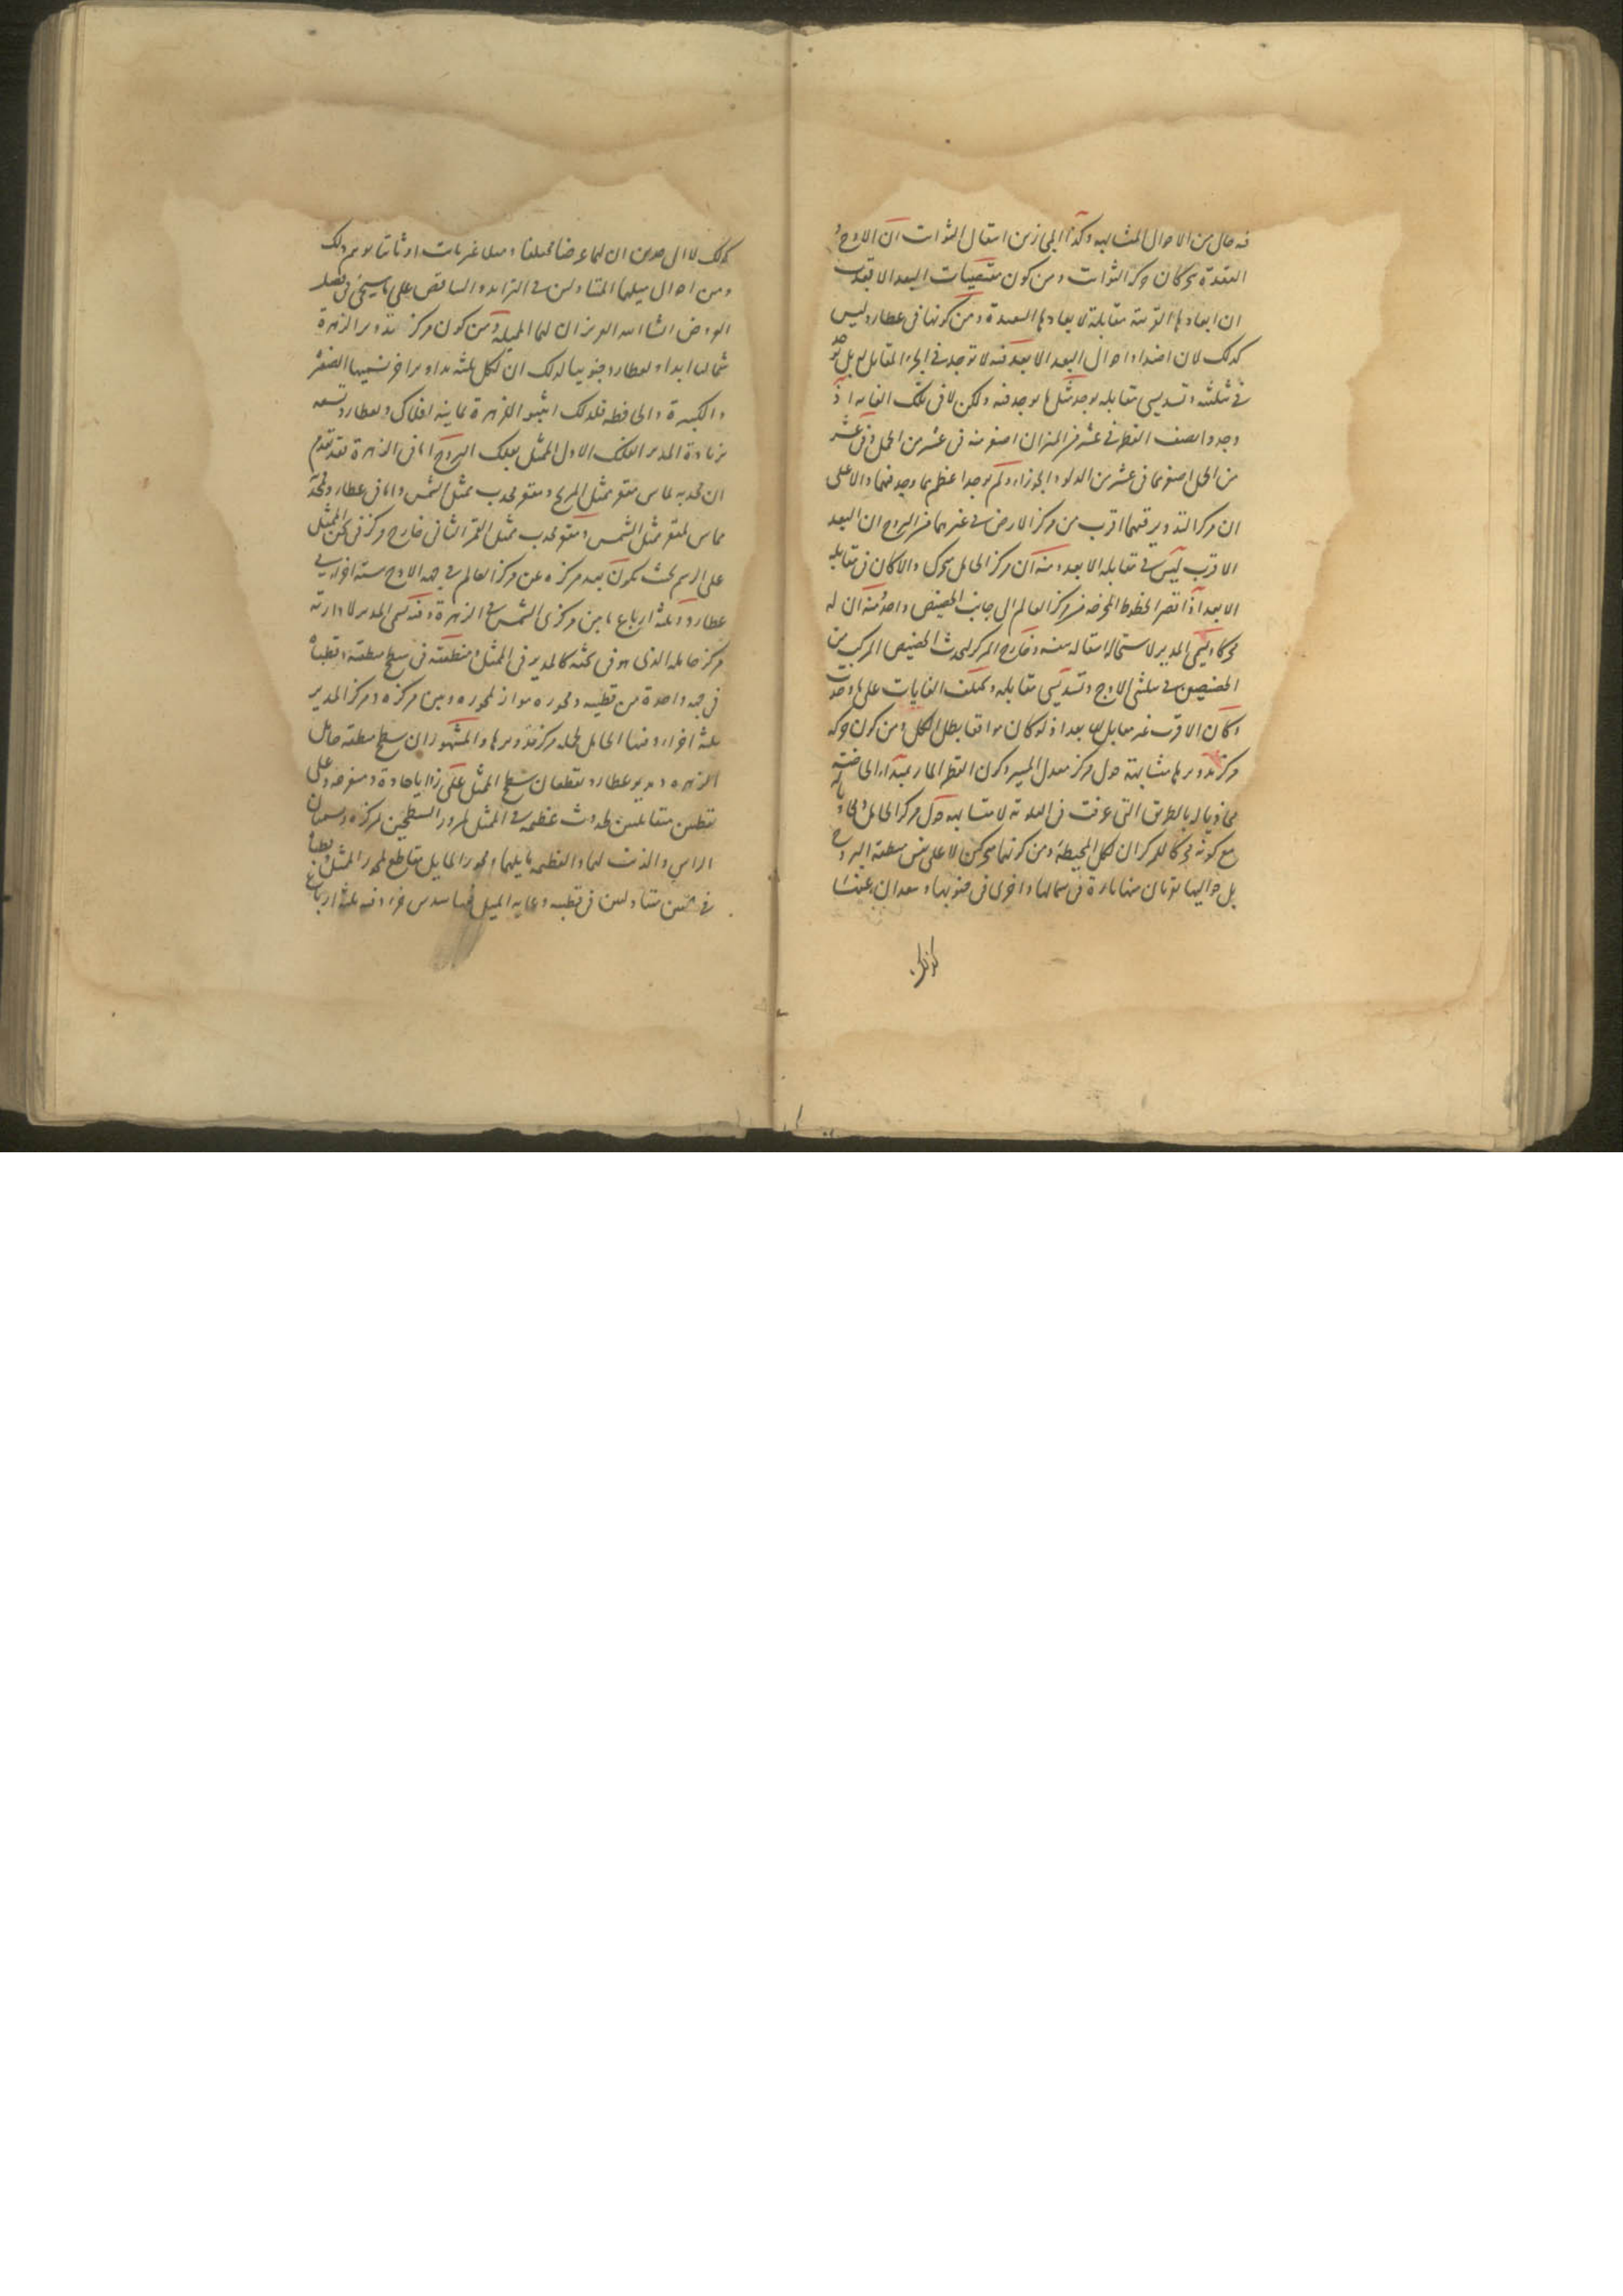 فيه حال من الاحوال المتشابهه وكذا المجاز من انتقال الثوابت ان الاوج و
العقدة يتحركان حركة الثوابت ومن كون مقتضيات البعد الابعد
ان ابعادها القريبة مقابلة لابعادها البعيدة ومن كونها فى عطارد ليس
كذلك لان اضداد احوال البعد الابعد فيه لا توجد فى الجزء المقابل له بل توجد
فى تثليثه وتسديسى مقابله يوجد مثل ما يوجد فيه ولكن لا فى تلك الغايه اذ
وجدوا نصف القطر فى عشر من الميزان اصغر منه فى عشر من الحمل وفى عشر
من الحمل اصغر مما فى عشر من الدلو والجوزاء ولم يوجد اعظم مما وجد فيهما والا على
ان مركز التدوير فيهما اقرب من مركز الارض فى غيرهما من البروج ان البعد
الاقرب ليس فى مقابله الابعد ومنه ان مركز الحامل متحرك والا كان فى مقابله
الابعد اذ اقصر الخطوط المخرجه من مركز العالم الى جانب الحضيض واحد ومنه ان له
محركا وليكن المدير لاستحاله انتقاله بنفسه وخارج المركز ليحدث الحضيض المركب من
الحضيضين فى تثليثى الاوج وتسديسى مقابله ويختلف الغايات على ما وجدت
وكان الاقرب غير مقابل للابعد اذ لو كان موافقا بطل الكل ومن كون حركه
مركز تدويرها متشابهة حول مركز معدل المسير وكون القطر المار بمبدأ الخاصه
محاذيا له بالطرق التى عرفت فى العلويه لا متشابهه حول مركز الحامل ولا محاذ
مع كونه محركا للمركز ان لكل المحيطة ومن كونها متحركين لا على نفس منطقه البروج
بل حواليها يوجدان منها تارة فى شمالها واخرى فى جنوبها ويبعدان عنها
كذلك
كذلك لا الى حدين ان لهما عرضا مختلفا وميلا غير ثابت او ثابتا يوهم ذلك
ومن احوال ميلهما المتبادلين فى التزايد والتناقص على ما سيجئ فى فصل
العروض ان شاء الله العزيز ان لهما المميله ومن كون مركز تدوير الزهرة
شماليا ابدا ولعطارد جنوبيا لذلك ان لكل ثلثه تداوير اخر نسميها الصغرى
والكبيرة والحافظه فلذلك اثبتوا للزهرة ثمانيه افلاك ولعطارد تسعه
بزيادة المدير الفلك الاول الممثل بفلك البروج اما فى الزهرة فقد تقدم
ان محدبه يماس مقعر ممثل المريخ ومقعره محدب ممثل الشمس واما فى عطارد فمحدبه
مماس لمقعر ممثل الشمس ومقعره محدب ممثل القمر الثانى خارج مركز فى ثخن الممثل
على الرسم بحيث يكون بعد مركزه عن مركز العالم فى جهه الاوج سته اجزاء فى
عطارد وثلثه ارباع ما بين مركزى الشمس فى الزهرة وفيه يسمى المدير لادارته
مركز حامله الذى هو فى ثخنه كالمدير فى الممثل ومنطقته فى سطح منطقته وقطباه
فى جهه واحدة من قطبيه ومحوره مواز لمحوره وبين مركزه ومركز المدير
ثلثه اجزاء ومنها الحامل لحمله مركز تدويرها والمشهور ان سطح منطقه حامل
الزهره ومدير عطارد يقطعان سطح الممثل على زوايا حادة ومنفرجه وعلى
نقطتين متقابلتين لحدوث عظيمه فى الممثل لمرور السطحين بمركزه ويسميان
الراس والذنب لهما والعظيمه مايلهما ومحور الحامل يقاطع لمحور الممثل وقطباه
فى جهتين متبادلتين فى قطبيه وغايه الميل فيها سدس جزء وفيه ثلثه ارباع